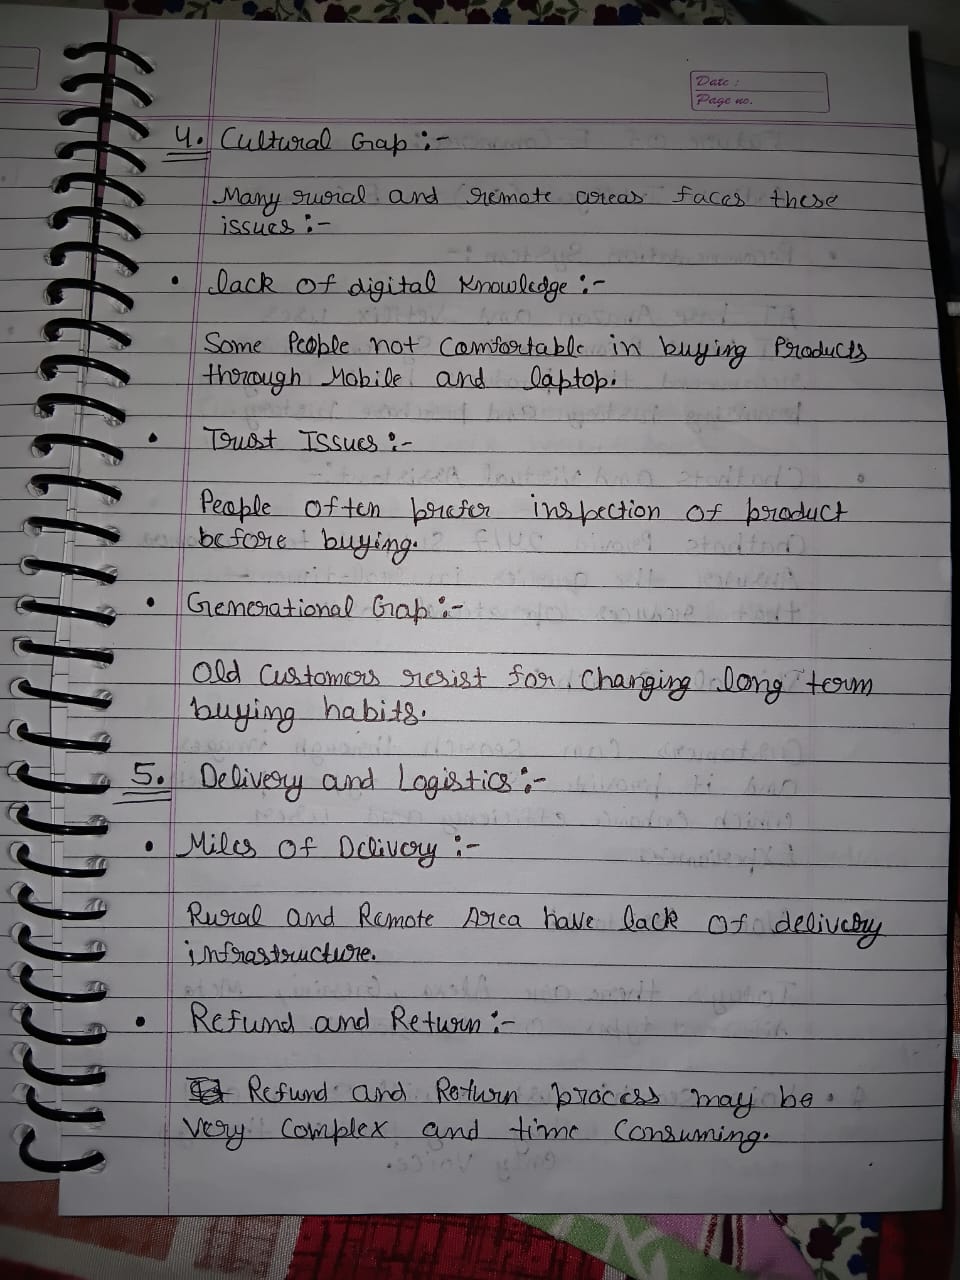 Date :
Page no.
4. Cultural Gap :-
Many rural and remote areas faces these
issues :-
• lack of digital Knowledge :-
Some People not comfortable in buying Products
through Mobile and laptop.
• Trust Issues :-
People often prefer inspection of product
before buying.
• Generational Gap :-
Old Customers resist for changing long term
buying habits.
5. Delivery and Logistics :-
• Miles of Delivery :-
Rural and Remote Area have lack of delivery
infrastructure.
• Refund and Return :-
Refund and Return process may be
very complex and time consuming.